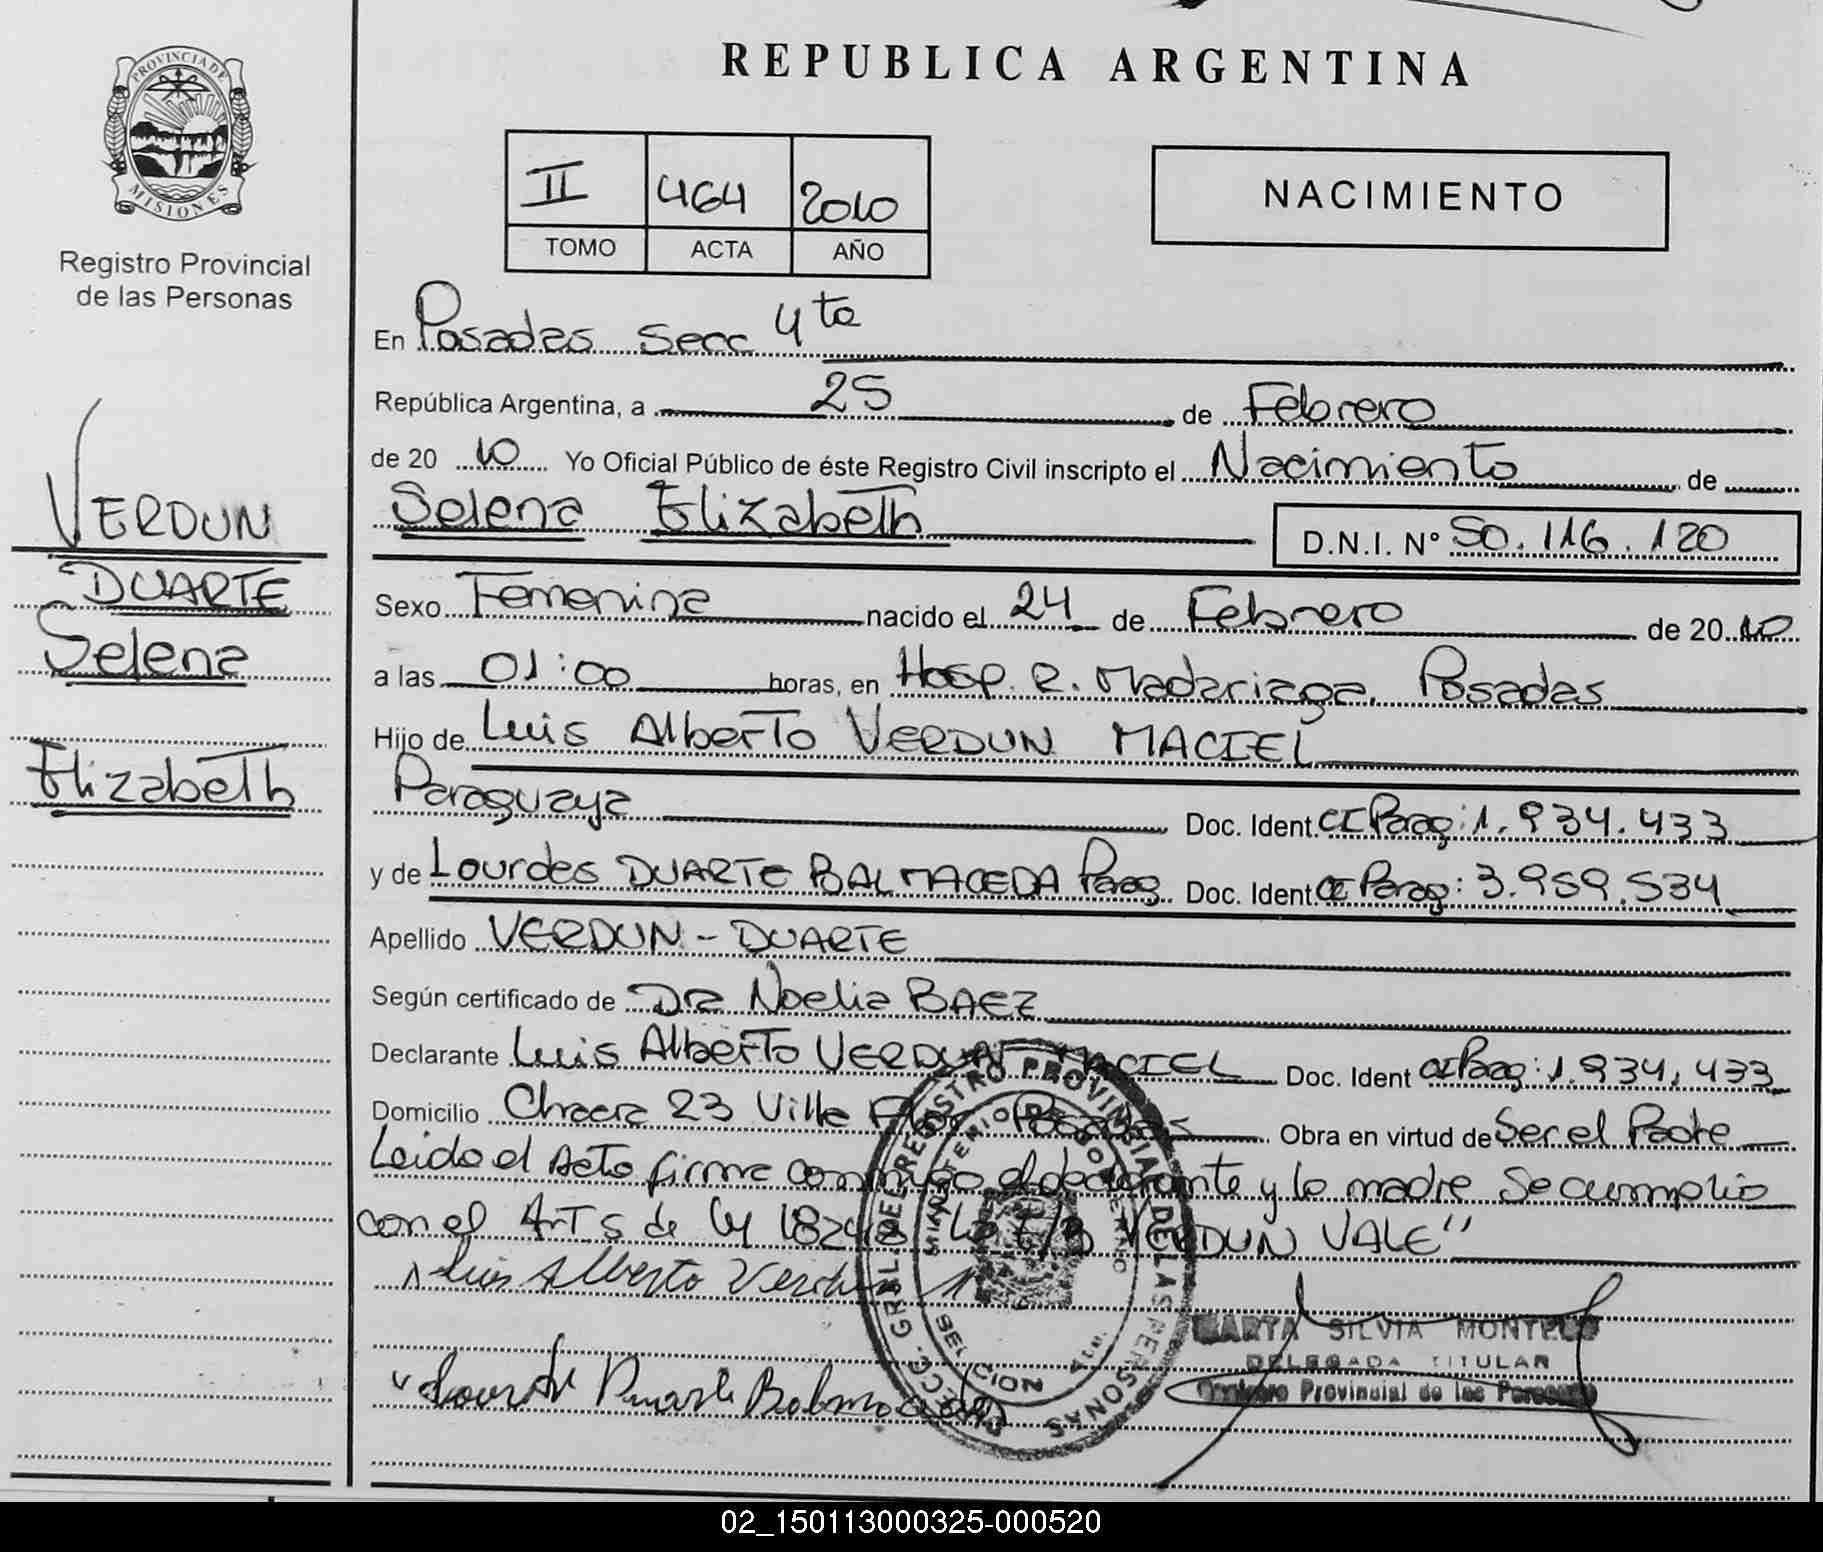 PROVINCIA DE
MISIONES
Registro Provincial
de las Personas
VERDUN
DUARTE
Selena
Elizabeth
REPUBLICA ARGENTINA
II 464 2010
TOMO ACTA AÑO
NACIMIENTO
En Posadas Secc 4ta
República Argentina, a 25 de Febrero
de 20 10 Yo Oficial Público de éste Registro Civil inscripto el Nacimiento de
Selena Elizabeth D.N.I. Nº 50.116.120
Sexo Femenina nacido el 24 de Febrero de 20 10
a las 01:00 horas, en Hosp. R. Madariaga. Posadas
Hijo de Luis Alberto VERDUN MACIEL
Paraguaya Doc. Ident. CI Parag: 1.934.433
y de Lourdes DUARTE BALMACEDA Parag. Doc. Ident. CI Parag: 3.959.534
Apellido VERDUN - DUARTE
Según certificado de Dra Noelia BAEZ
Declarante Luis Alberto VERDUN MACIEL Doc. Ident CI Parag: 1.934.433
Domicilio Chacra 23 Villa Flor Posadas Obra en virtud de Ser el Padre
Leido el Acta firma conmigo el declarante y la madre Se cumplio
con el Art 5 de Ley 18248 VERDUN VALE"
Luis Alberto Verdun
Lourdes Duarte Balmaceda
DIRECC. GRAL. DE REGISTRO PROVINCIAL DE LAS PERSONAS
MINISTERIO DE GOBIERNO
MARTA SILVIA
DELEGADA TITULAR
Provincial de las Personas
02_150113000325-000520